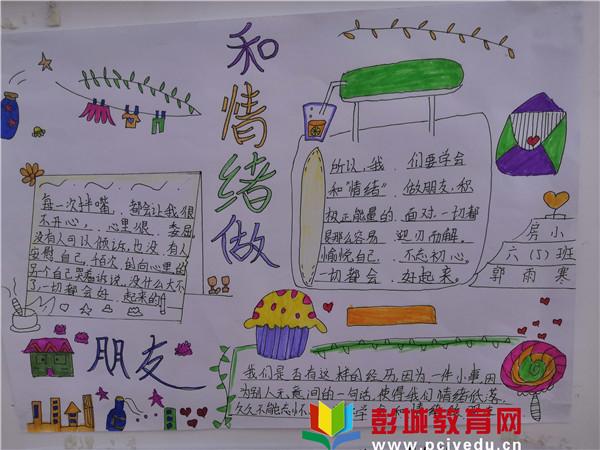 和情绪做
朋友
每一次拌嘴,都会让我很
不开心,心里很委屈
没有人可以倾诉,也没有人
安慰自己,怕次的向心里的
另个自己哭着诉说,没什么大不
了,一切都会好起来的!
所以,我们要学会
和"情绪"做朋友,积
极正能量的面对一切都
是那么容易迎刃而解。
愉悦自己,不忘初心。
一切都会好起来。
房小
六(5)班
郭雨寒
我们是否有这样的经历,因为一件小事,因
为别人无意间的一句话,使得我们情绪低落,
久久不能忘怀
彭城教育网
www.pcivedu.cn